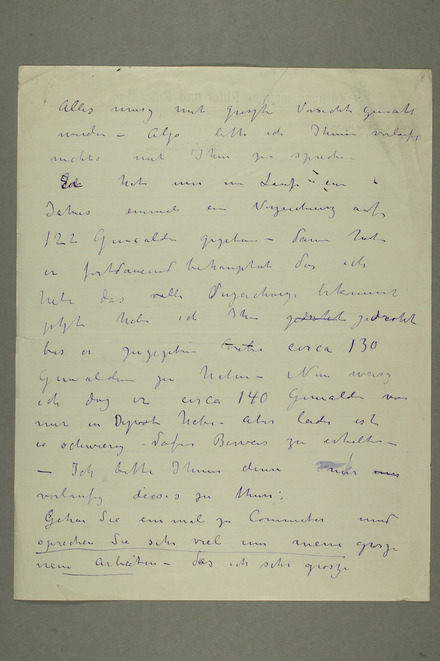 Alles muss mit grosste Vorsicht gemacht
werden – Also bitte ich Ihnen vorlaufig
nichts mit Ihm zu sprechen –
Er hat mir im Laufe ein
Jahres einmal ein Verzeichnung auf
122 Gemalden gegeben – dann hat
er fortdauernd behauptet das ich
habe das volle Verzeichnung bekommen
jetzt habe ich Ihm gedroht
bis er zugegeben circa 130
Gemalden zu haben – Nun weiss
ich das er circa 140 Gemalden von
mir in Depot habe – aber leider ist
es schwierig dafur Beweis zu erhalten –
– Ich bitte Ihnen denn nur
vorlaufig dieses zu thun:
Gehen Sie einmal zu Commeter und
sprechen Sie sehr viel um meine grosze
neue Arbeiten – das ich sehr grosze